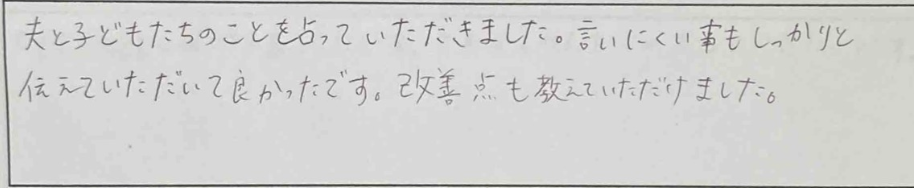 夫と子どもたちのことを占っていただきました。言いにくい事もしっかりと
伝えていただいて良かったです。改善点も教えていただけました。